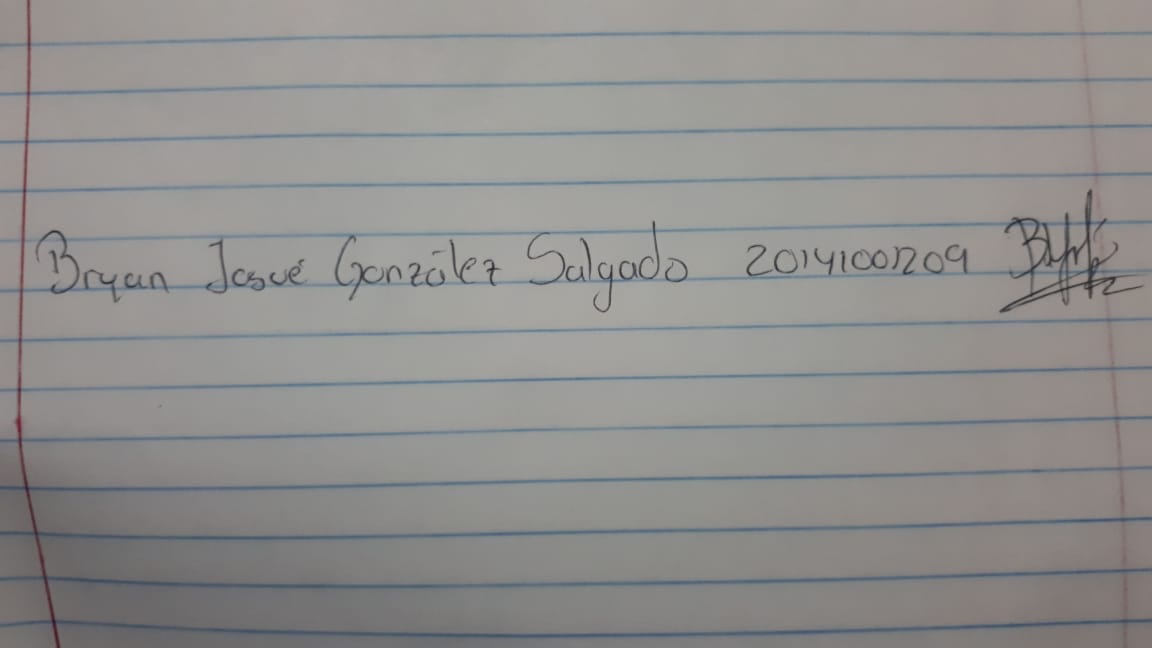 Bryan Josué González Salgado 20141001209